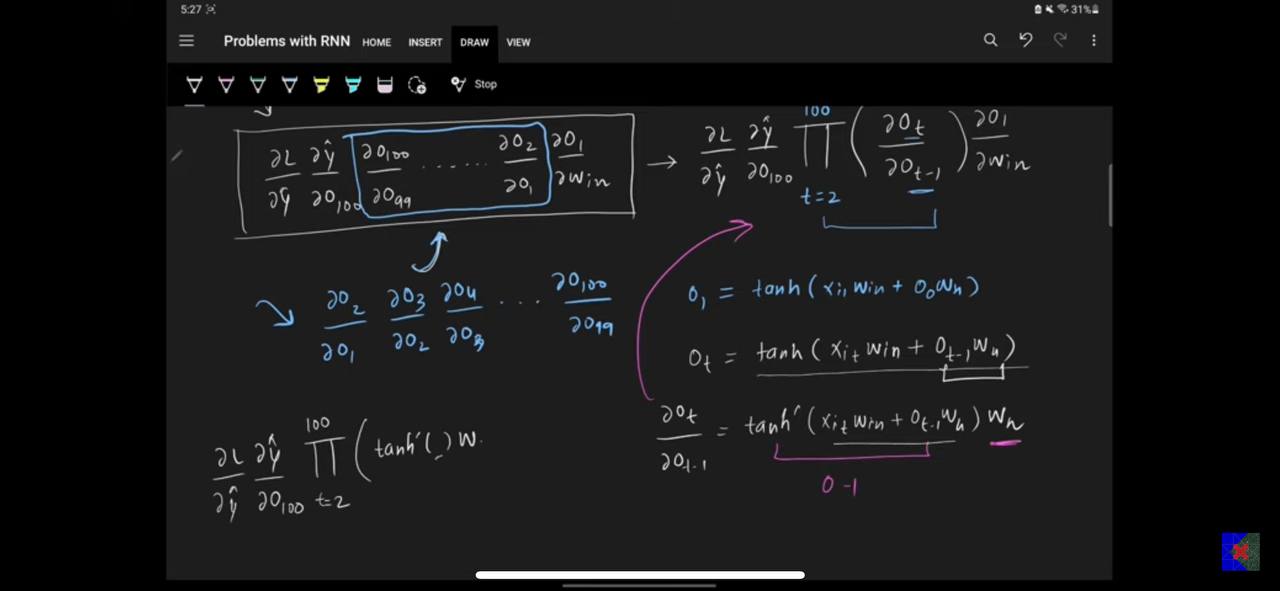 5:27 31%
Problems with RNN HOME INSERT DRAW VIEW
Stop
∂L/∂ŷ ∂ŷ/∂O₁₀₀ ∂O₁₀₀/∂O₉₉ ...... ∂O₂/∂O₁ ∂O₁/∂Win → ∂L/∂ŷ ∂ŷ/∂O₁₀₀ 100 ∏ t=2 (∂Oₜ/∂Oₜ₋₁) ∂O₁/∂Win
∂O₂/∂O₁ ∂O₃/∂O₂ ∂O₄/∂O₃ ... ∂O₁₀₀/∂O₉₉
O₁ = tanh(xᵢ₁ Win + O₀Wh)
Oₜ = tanh(xᵢₜ Win + Oₜ₋₁Wh)
∂Oₜ/∂Oₜ₋₁ = tanh′(xᵢₜ Win + Oₜ₋₁Wh) Wh
0-1
∂L/∂ŷ ∂ŷ/∂O₁₀₀ 100 ∏ t=2 (tanh′() W